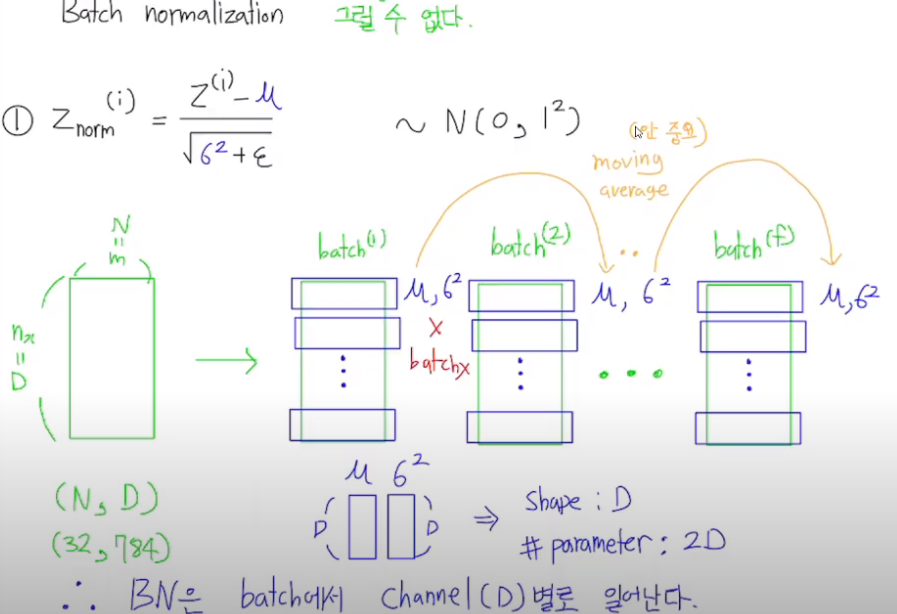 Batch normalization 그릴 수 없다.
① Z_norm^(i) = (Z^(i) - μ) / √(6² + ε) ~ N(0, 1²)
(안 중요)
moving
average
N
=
m
batch^(1) batch^(2) .. batch^(f)
μ, 6² μ, 6² μ, 6²
x
batchx
n_x
=
D
μ 6²
(N, D)
(32, 784)
D D ⇒ Shape : D
# parameter : 2D
∴ BN은 batch에서 channel(D)별로 일어난다.